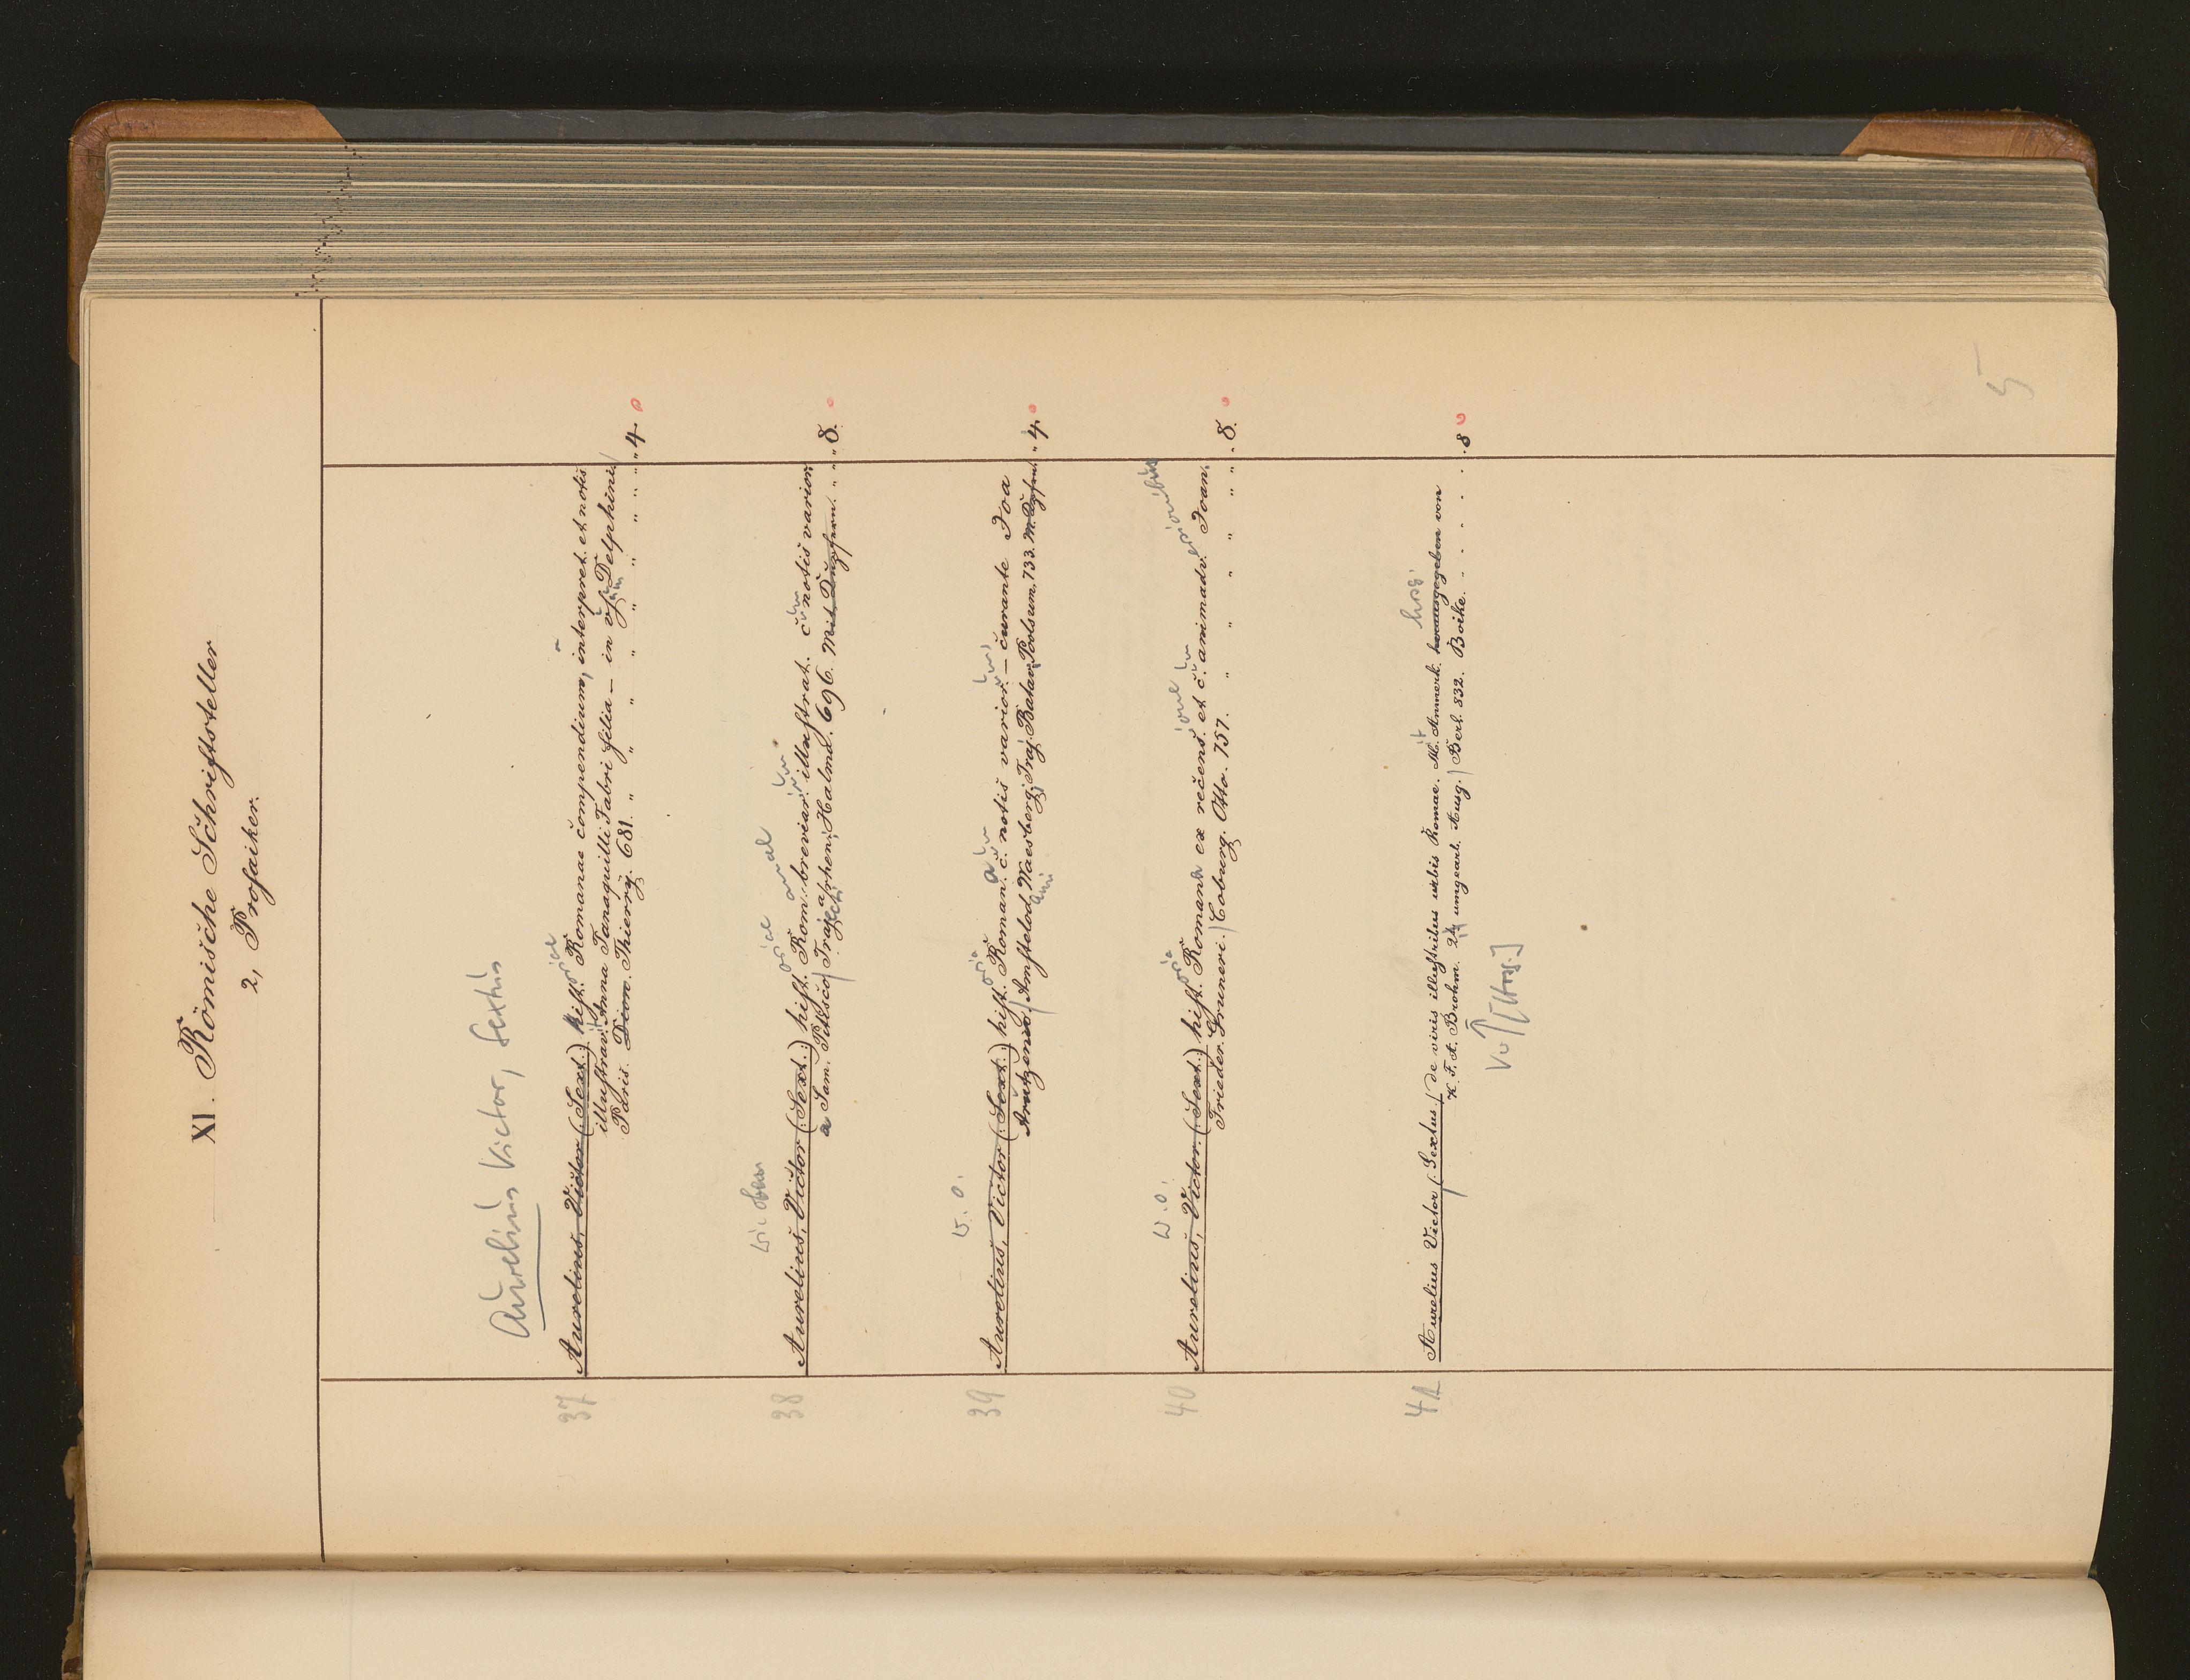 XI. Römische Schriftsteller
2, Prosaiker.
Aurelius Victor, Sextus
37 Aurelius, Victor (Sext.) hist. Romanae compendium, interpret. et notis
illustrav. Anna Tanaquilli Fabri filia — in usum Delphini
Paris. Dion. Thierry. 681. " " " " " " " " " 4.
wie oben
38 Aurelius, Victor (Sext.) hist. Rom. breviar. illustrat. c. notis varior.
a Sam. Pitisco Traj. a. rhen. Halma. 696. Mit Kupfern. " " 8.
w. o.
39 Aurelius, Victor (Sext.) hist. Roman. c. notis varior. — curante Joa
Arntzenio Amstelod. Waesberg. Traj. Batav. Poolsum. 733. M. Kpfrn. " 4.
w. o.
40 Aurelius, Victor. (Sext.) hist. Romana ex recens. et c. animadv. Joan.
Frieder. Gruneri. Coburg. Otto. 757. " " " " " " 8.
41 Aurelius Victor (Sextus.) de viris illustribus urbis Romae. M. Anmerk. herausgegeben von hrsg.
K. F. A. Brohm. 2te umgearb. Ausg. Berl. 832. Boike. - - - - - 8
[Hrsg.]
5